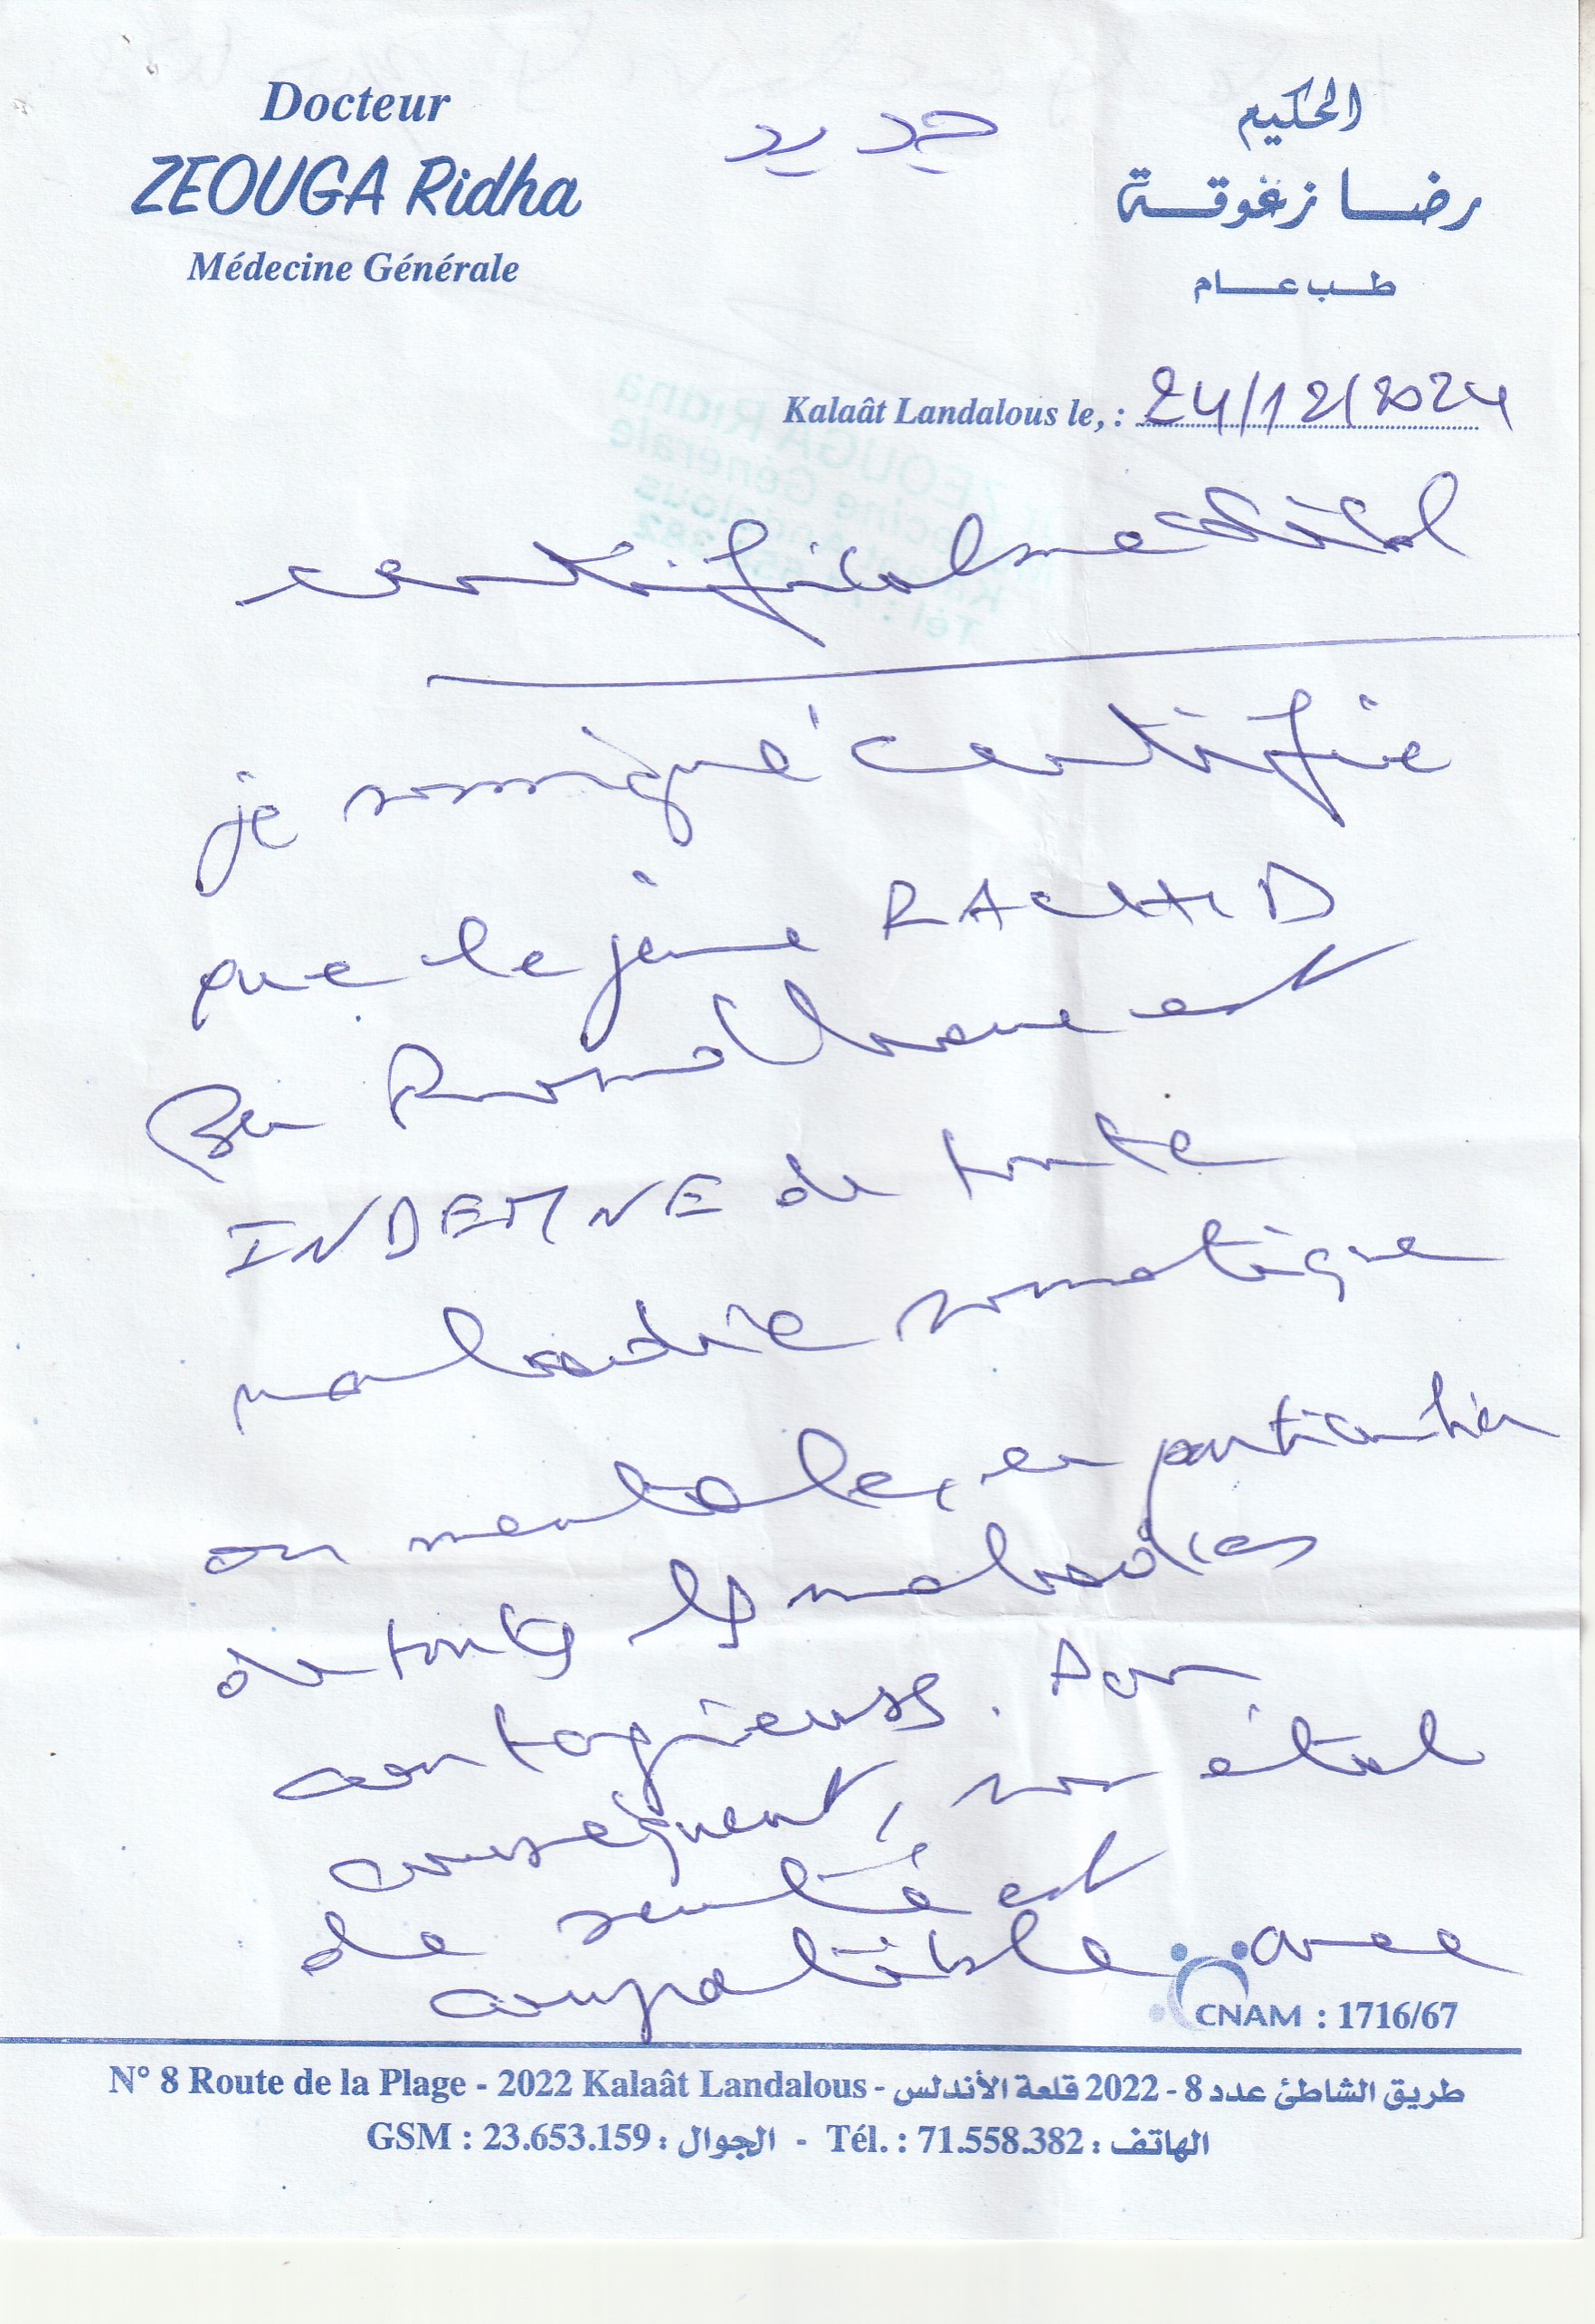 Docteur
ZEOUGA Ridha
Médecine Générale
جديد
الحكيم
رضا زغوقة
طب عام
Kalaât Landalous le, : 24/12/2024
certificat medical
je soussigné certifie
que le jeune RACHID
Ben Romdhane est
INDEMNE de toute
maladie somatique
ou mentale, en particulier
de toutes les maladies
contagieuses. Par
conséquent, son état
de santé est
compatible avec
CNAM : 1716/67
N° 8 Route de la Plage - 2022 Kalaât Landalous - طريق الشاطئ عدد 8 - 2022 قلعة الأندلس
GSM : 23.653.159 : الجوال - Tél. : 71.558.382 : الهاتف